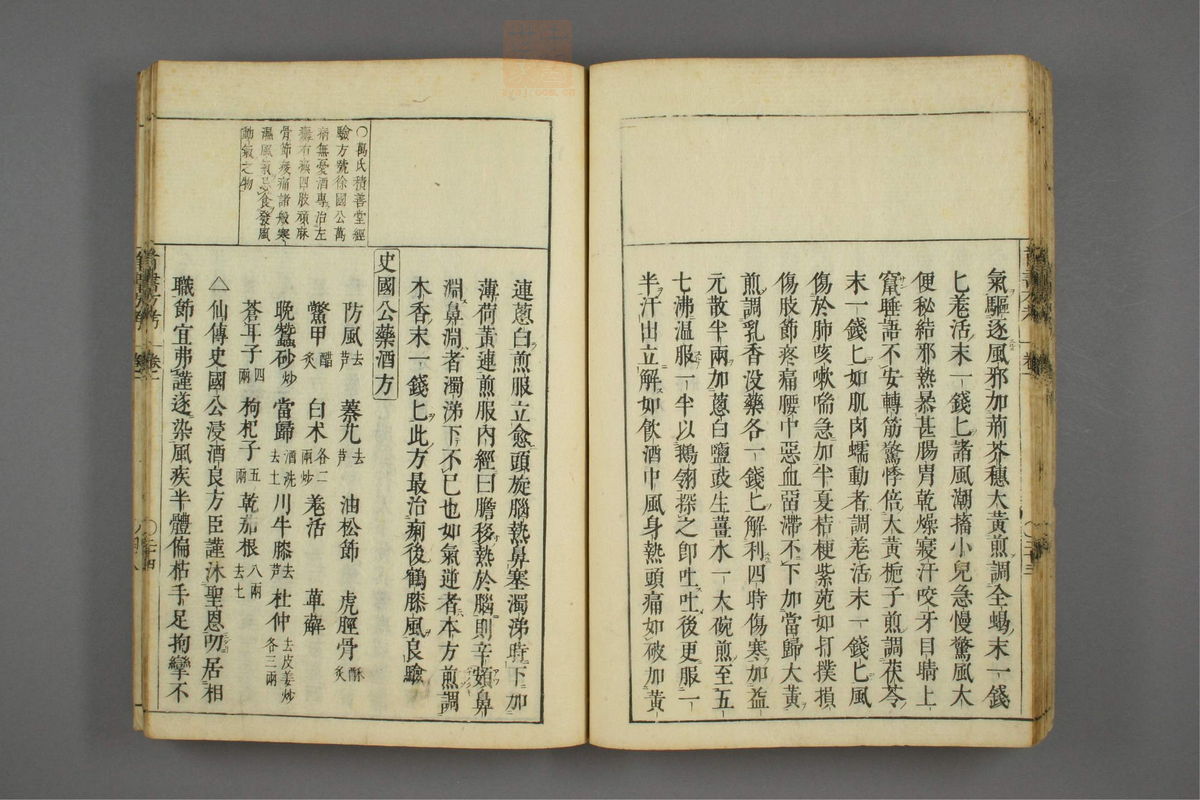 氣驅逐風邪加荊芥穗大黃煎調全蝎末一錢
匕羗活末一錢匕諸風潮搐小兒急慢驚風大
便秘結邪熱暴甚腸胃乾燥寢汗咬牙目睛上
竄睡語不安轉筋驚悸倍大黃梔子煎調茯苓
末一錢匕如肌肉蠕動者調羗活末一錢匕風
傷於肺咳嗽喘急加半夏桔梗紫菀如打撲損
傷肢節疼痛腰中惡血留滯不下加當歸大黃
煎調乳香没藥各一錢匕解利四時傷寒加益
元散半兩加蔥白鹽豉生薑水一大碗煎至五
七沸温服一半以鵝翎探之即吐吐後更服一
半汗出立解如飲酒中風身熱頭痛如破加黃
連蔥白煎服立愈頭旋腦熱鼻塞濁涕時下加
薄荷黃連煎服內經曰膽移熱於腦則辛頞鼻
淵鼻淵者濁涕下不已也如氣逆者本方煎調
木香末一錢匕此方最治痢後鶴膝風良驗
〇萬氏積善堂經
驗方號徐國公萬
病無憂酒專治左
癱右瘓四肢頑麻
骨節痠痛諸般寒
濕風氣忌食發風
動氣之物
史國公藥酒方
防風去芦 蓁艽去芦 油松節 虎脛骨酥炙
鱉甲醋炙 白术各二兩炒 羗活 萆薢
晚蠶砂炒 當歸酒洗去土 川牛膝去芦 杜仲去皮姜炒各三兩
蒼耳子四兩 枸杞子五兩 乾茄根八兩去七
△仙傳史國公浸酒良方臣謹沐聖恩叨居相
職節宜弗謹遂染風疾半體偏枯手足拘攣不